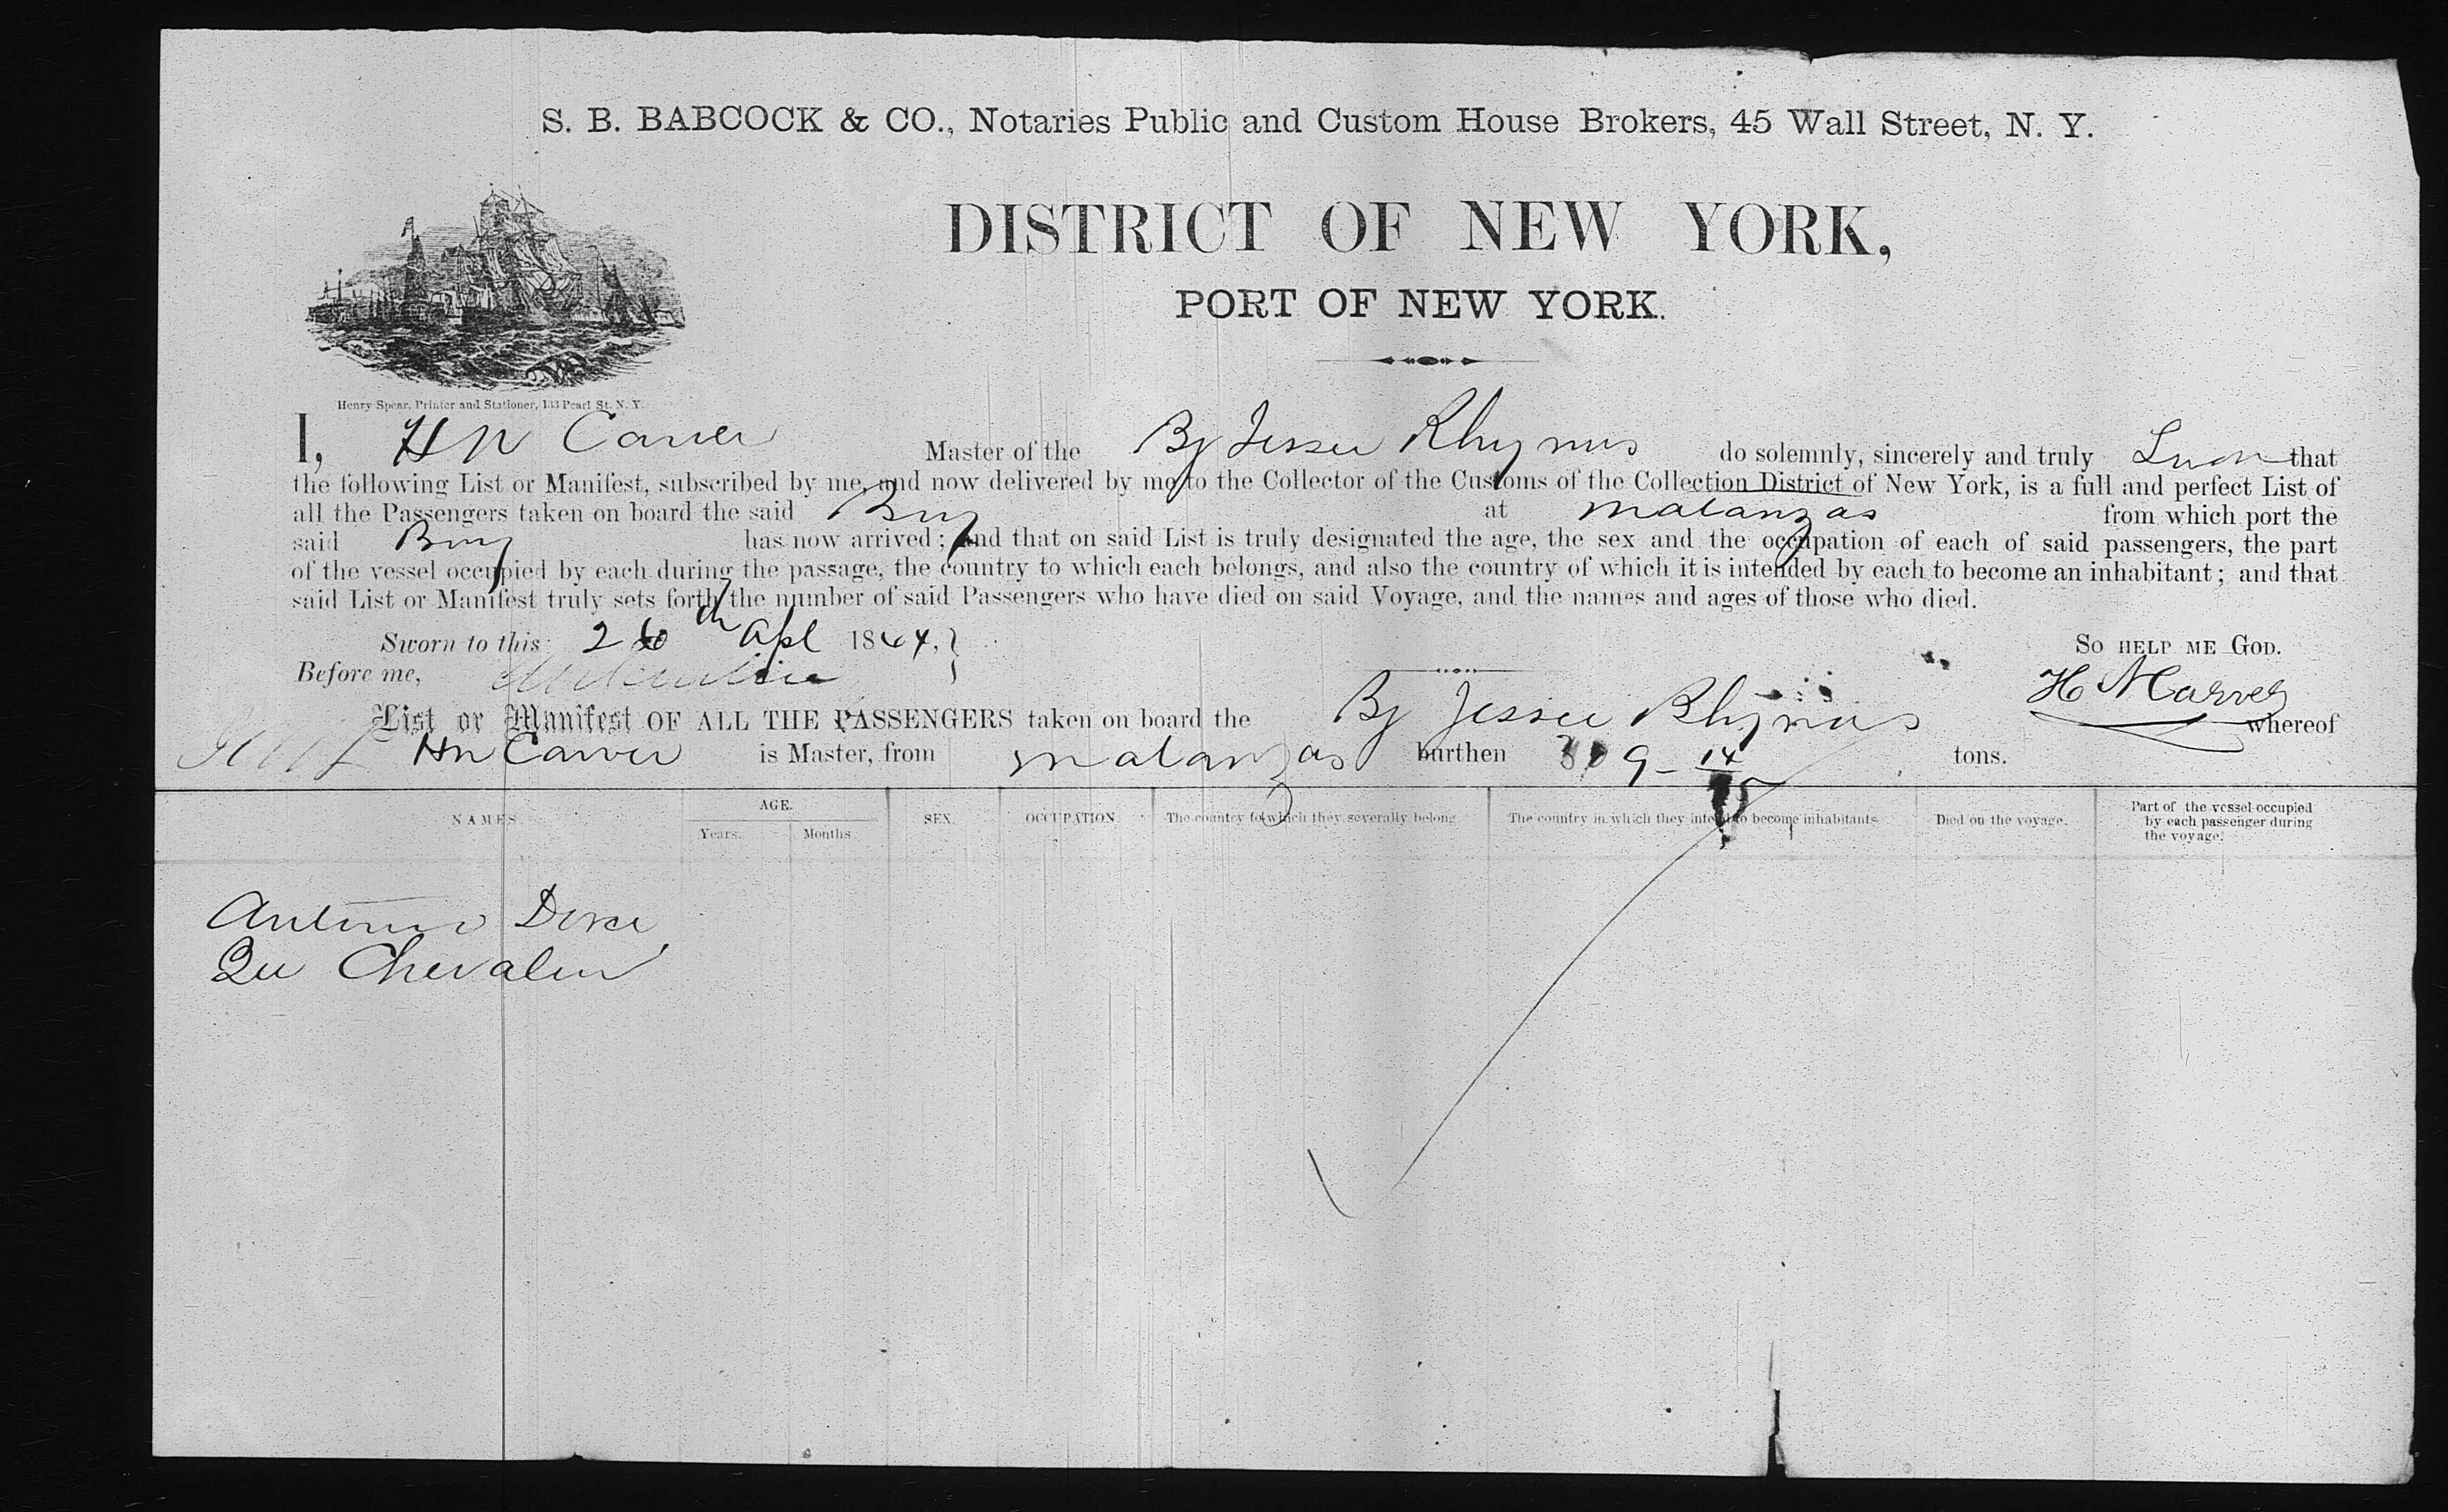 S. B. BABCOCK & CO., Notaries Public and Custom House Brokers, 45 Wall Street, N. Y.
DISTRICT OF NEW YORK,
PORT OF NEW YORK.
Henry Spear, Printer and Stationer, 133 Pearl St. N. Y.
I, H N Carver Master of the Bg Jesse Rhynus do solemnly, sincerely and truly that
the following List or Manifest, subscribed by me, and now delivered by me to the Collector of the Customs of the Collection District of New York, is a full and perfect List of
all the Passengers taken on board the said Brig at Matanzas from which port the
said Brig has now arrived; and that on said List is truly designated the age, the sex and the occupation of each of said passengers, the part
of the vessel occupied by each during the passage, the country to which each belongs, and also the country of which it is intended by each to become an inhabitant; and that
said List or Manifest truly sets forth the number of said Passengers who have died on said Voyage, and the names and ages of those who died.
Sworn to this 26th Apl 1864, SO HELP ME GOD.
Before me, H N Carver
List or Manifest OF ALL THE PASSENGERS taken on board the Bg Jesse Rhynus whereof
H N Carver is Master, from Matanzas burthen 309 - 14 tons.
NAMES AGE. Years. Months SEX. OCCUPATION The country to which they severally belong The country in which they intend to become inhabitants Died on the voyage. Part of the vessel occupied by each passenger during the voyage.
Antonio
Chevalier